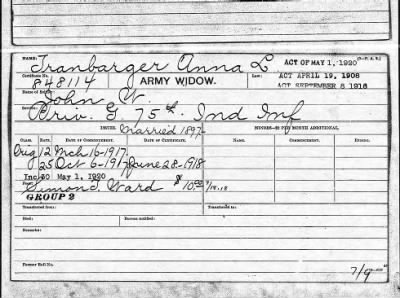 NAME: Tranbarger Anna L ACT OF MAY 1, 1920
Certificate No. 848114 ARMY WIDOW. ACT APRIL 19, 1908
ACT SEPTEMBER 8 1916
Name of Soldier: John W.
Service: Priv. G, 75th Ind Inf
ISSUES. Married 1897 MINORS—$2 PER MONTH ADDITIONAL.
CLASS. RATE. DATE OF COMMENCEMENT. DATE OF CERTIFICATE. NAMES. COMMENCEMENT. ENDING.
Orig 12 Mch 16-1917
25 Oct 6-1917 June 28-1918
Inc 30 May 1, 1920
Simon T. Ward $10.00
GROUP 2
Transferred from: Transferred to:
Died: Bureau notified:
Remarks:
Former Roll No. 7/9